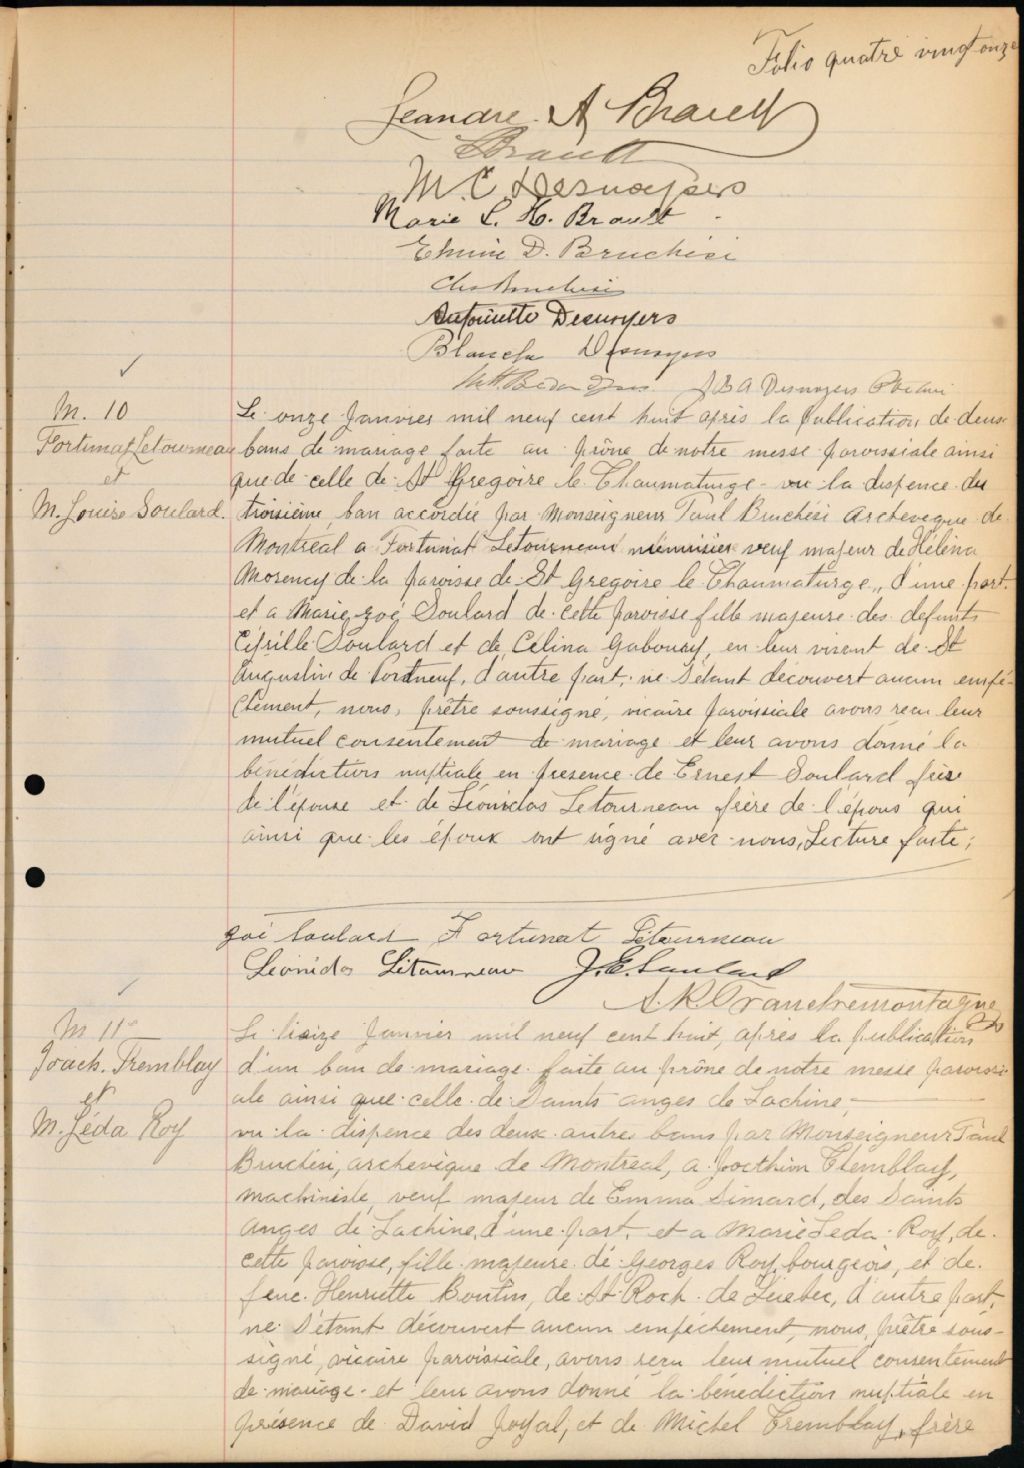 Folio quatre vingt onze
Leandre A Brault
Brault
M. C. Desnoyers
Marie L. H. Brault
Elmire D. Bruchési
Chs Bruchési
Antoinette Desnoyers
Blanche Desnoyers
J B A Desnoyers
M. 10
Fortunat Letourneau
et
M. Louise Soulard.
Le onze Janvier mil neuf cent huit après la publication de deux
bans de mariage faite au prône de notre messe paroissiale ainsi
que de celle de St Gregoire le Thaumaturge vu la dispence du
troisième ban accordée par Monseigneur Paul Bruchési Archevêque de
Montréal a Fortunat Letourneau menuisier veuf majeur de Hélèna
Morency de la paroisse de St Gregoire le Thaumaturge, d'une part
et a Marie Zoé Soulard de cette paroisse fille majeure des defunts
Cyrille Soulard et de Célina Gaboury, en leur vivant de St
Augustin de Portneuf, d'autre part, ne s'étant découvert aucun empê-
chement, nous, prêtre soussigné, vicaire paroissiale avons reçu leur
mutuel consentement de mariage et leur avons donné la
bénédiction nuptiale en presence de Ernest Soulard frère
de l'épouse et de Léonidas Letourneau frère de l'époux qui
ainsi que les époux ont signé avec nous, Lecture faite;
Zoé Soulard Fortunat Létourneau
Léonidas Létourneau J. E. Soulard
A. R. Tranchemontagne
M 11
Joach. Tremblay
et
M. Léda Roy
Le treize Janvier mil neuf cent huit, après la publication
d'un ban de mariage faite au prône de notre messe paroissi-
ale ainsi que celle de Saints anges de Lachine,
vu la dispence des deux autres bans par Monseigneur Paul
Bruchési, archevêque de Montréal, a Joachim Tremblay,
machiniste, veuf majeur de Emma Simard, des Saints
Anges de Lachine, d'une part, et a Marie Leda Roy, de
cette paroisse, fille majeure de Georges Roy, bourgeois, et de
feue Henriette Boutin, de St Roch de Québec, d'autre part,
ne s'étant découvert aucun empêchement, nous, prêtre sous-
signé, vicaire paroissiale, avons reçu leur mutuel consentement
de mariage et leur avons donné la bénédiction nuptiale en
présence de David Joyal, et de Michel Tremblay, frère